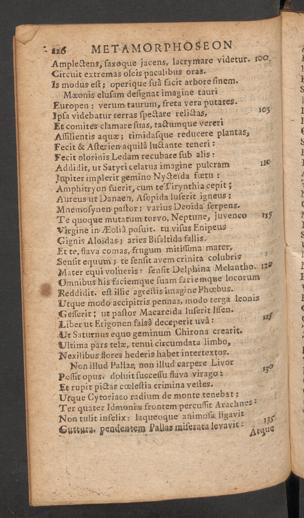 226 METAMORPHOSEON
Amplectens, saxoque jacens, lacrymare videtur. 100
Circuit extremas oleis pacalibus oras.
Is modus est; operique suâ facit arbore finem.
Mæonis elusam designat imagine tauri
Europen: verum taurum, freta vera putares.
Ipsa videbatur terras spectare relictas, 105
Et comites clamare suas, tactumque vereri
Assilientis aquæ; timidasque reducere plantas,
Fecit & Asterien aquilâ luctante teneri:
Fecit olorinis Ledam recubare sub alis:
Addidit, ut Satyri celatus imagine pulcram 110
Jupiter implerit gemino Nycteida fœtu:
Amphitryon fuerit, cum te Tirynthia cepit;
Aureus ut Danaen, Asopida luserit igneus;
Mnemosynen pastor: varius Deoida serpens.
Te quoque mutatum torvo, Neptune, juvenco 115
Virgine in Æoliâ posuit. tu visus Enipeus
Gignis Aloïdas; aries Bisaltida fallis.
Et te, flava comas, frugum mitissima mater,
Sensit equum; te sensit avem crinita colubris
Mater equi volucris: sensit Delphina Melantho. 120
Omnibus his faciemque suam faciemque locorum
Reddidit. est illic agrestis imagine Phœbus.
Utque modo accipitris pennas, modo terga leonis
Gesserit; ut pastor Macareida luserit Issen.
Liber ut Erigonen falsâ deceperit uvâ: 125
Ut Saturnus equo geminum Chirona crearit.
Ultima pars telæ, tenui circumdata limbo,
Nexilibus flores hederis habet intertextos.
Non illud Pallas, non illud carpere Livor
Possit opus. doluit successu flava virago: 130
Et rupit pictas cœlestia crimina vestes.
Utque Cytoriaco radium de monte tenebat;
Ter quater Idmoniæ frontem percussit Arachnes:
Non tulit infelix: laqueoque animosa ligavit
Guttura. pendentem Pallas miserata levavit: 135
Atque